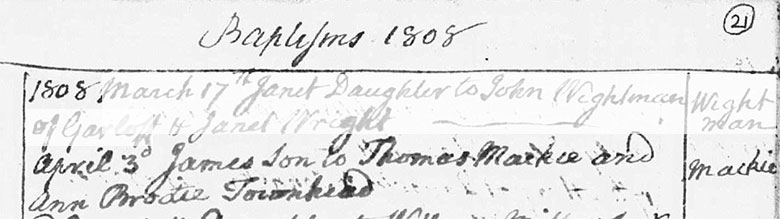 21
Baptisms 1808
1808 March 17th Janet Daughter to John Wightman
of Garloff & Janet Wright
Wight
man
April 3d James Son to Thomas Mackie and
Mackie
Ann Brodie Townhead